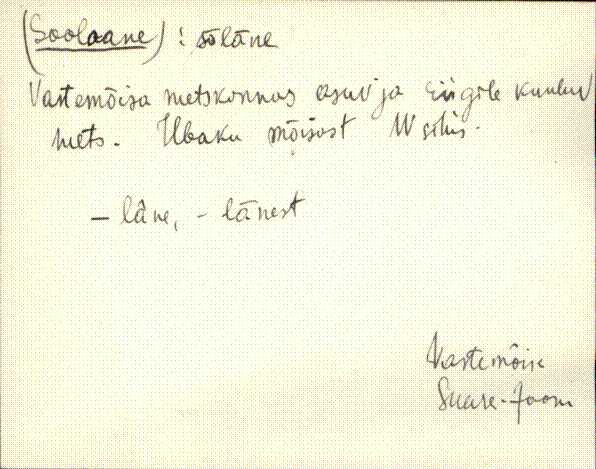 (Soolaane) : sōlāne
Vastemõisa metskonnas asuv ja riigile kuuluv
mets. Ubaku mõisast W sihis.
– lāne, - lānest
Vastemõisa
Suure-Jaani